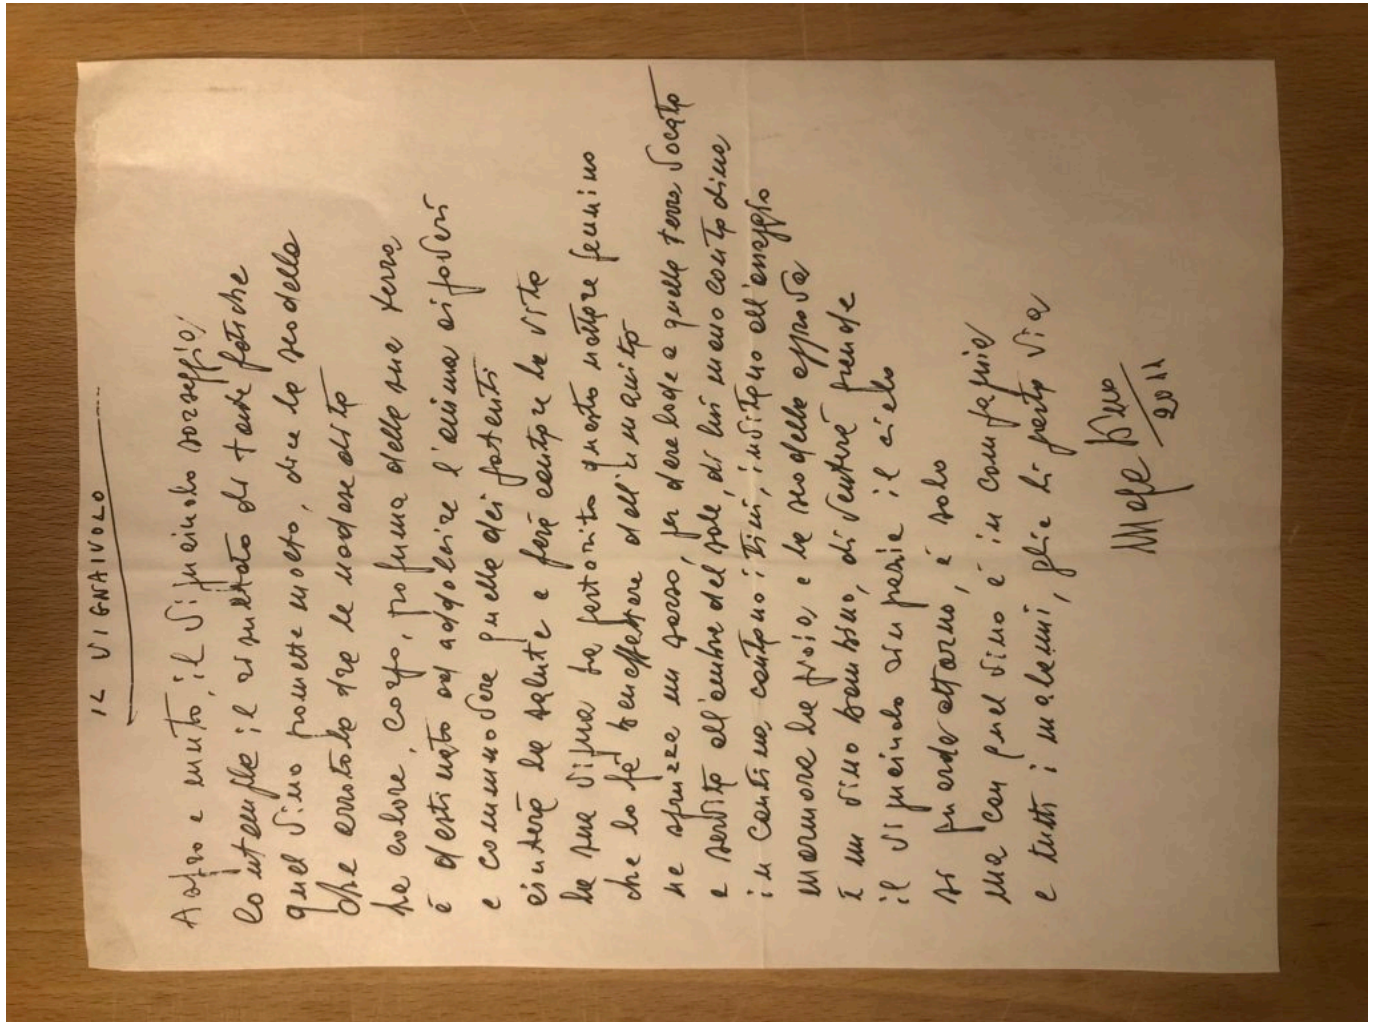 IL VIGNAIVOLO
Aspro e muto, il vignaiolo sorseggia,
lo stemple il risultato di tante fatiche
quel vino promette molto, dice la scodella
che arrotola tra le nodose dita
ha colore, corpo, profuma della sua terra
è destinato ad addolcire l'anima ai poveri
e commuovere quella dei potenti
aiuterà la salute e farà cantare la vita
la sua vigna ha partorito questo nettare femmino
che lo fa benefattore dell'umanità
ne spruzza un sorso, per dare lode a quella terra vocata
e servita all'ambra del sole, di lui mano contadina
in cantina canta noi tini, invitano all'assaggio
mormora la gioia, e la scodella approva
È un vino bambino, diventerà grande
il vignaiolo ringrazia il cielo
si guarda attorno, è solo
ma con quel vino è in compagnia
e tutti i malanni, glie li porta via
2011